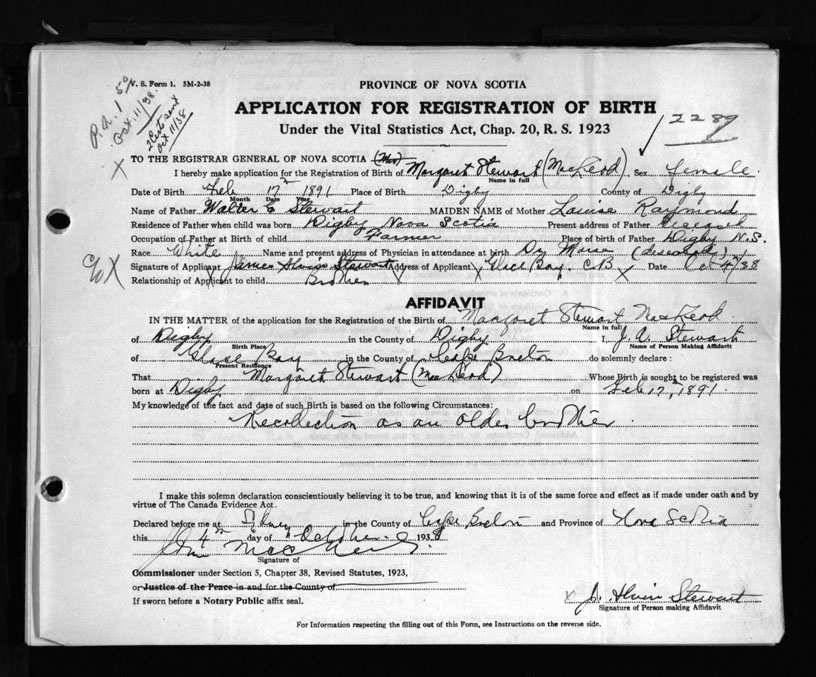 V. S. Form 1. 5M-2-38
P.a. 1 50
Oct. 11/38.
Oct 11/38
PROVINCE OF NOVA SCOTIA
APPLICATION FOR REGISTRATION OF BIRTH
Under the Vital Statistics Act, Chap. 20, R. S. 1923
2289
TO THE REGISTRAR GENERAL OF NOVA SCOTIA (Mrs)
I hereby make application for the Registration of Birth of Margaret Stewart (MacLeod), Sex female
Name in full
Date of Birth Feb 17th 1891 Place of Birth Digby County of Digby
Month Date Year
Name of Father Walter E Stewart MAIDEN NAME of Mother Louise Raymond
Residence of Father when child was born Digby Nova Scotia Present address of Father Deceased
Occupation of Father at Birth of child Farmer Place of birth of Father Digby N.S.
Race White Name and present address of Physician in attendance at birth Dr Morse (Deceased)
Signature of Applicant James Alvin Stewart Address of Applicant Glace Bay, C.B Date Oct 4th/38
Relationship of Applicant to child Brother
AFFIDAVIT
IN THE MATTER of the application for the Registration of the Birth of Margaret Stewart MacLeod
Name in full
of Digby in the County of Digby I, J. A. Stewart
Birth Place Name of Person Making Affidavit
of Glace Bay in the County of Cape Breton do solemnly declare :
Present Residence
That Margaret Stewart (MacLeod) Whose Birth is sought to be registered was
born at Digby on Feb 17th, 1891.
My knowledge of the fact and date of such Birth is based on the following Circumstances:
Recollection as an older brother.
I make this solemn declaration conscientiously believing it to be true, and knowing that it is of the same force and effect as if made under oath and by
virtue of The Canada Evidence Act.
Declared before me at Sydney in the County of Cape Breton and Province of Nova Scotia
this 4th day of October 1938
Signature of
Commissioner under Section 5, Chapter 38, Revised Statutes, 1923,
or Justice of the Peace in and for the County of
If sworn before a Notary Public affix seal.
x J. Alvin Stewart
Signature of Person making Affidavit
For Information respecting the filling out of this Form, see Instructions on the reverse side.